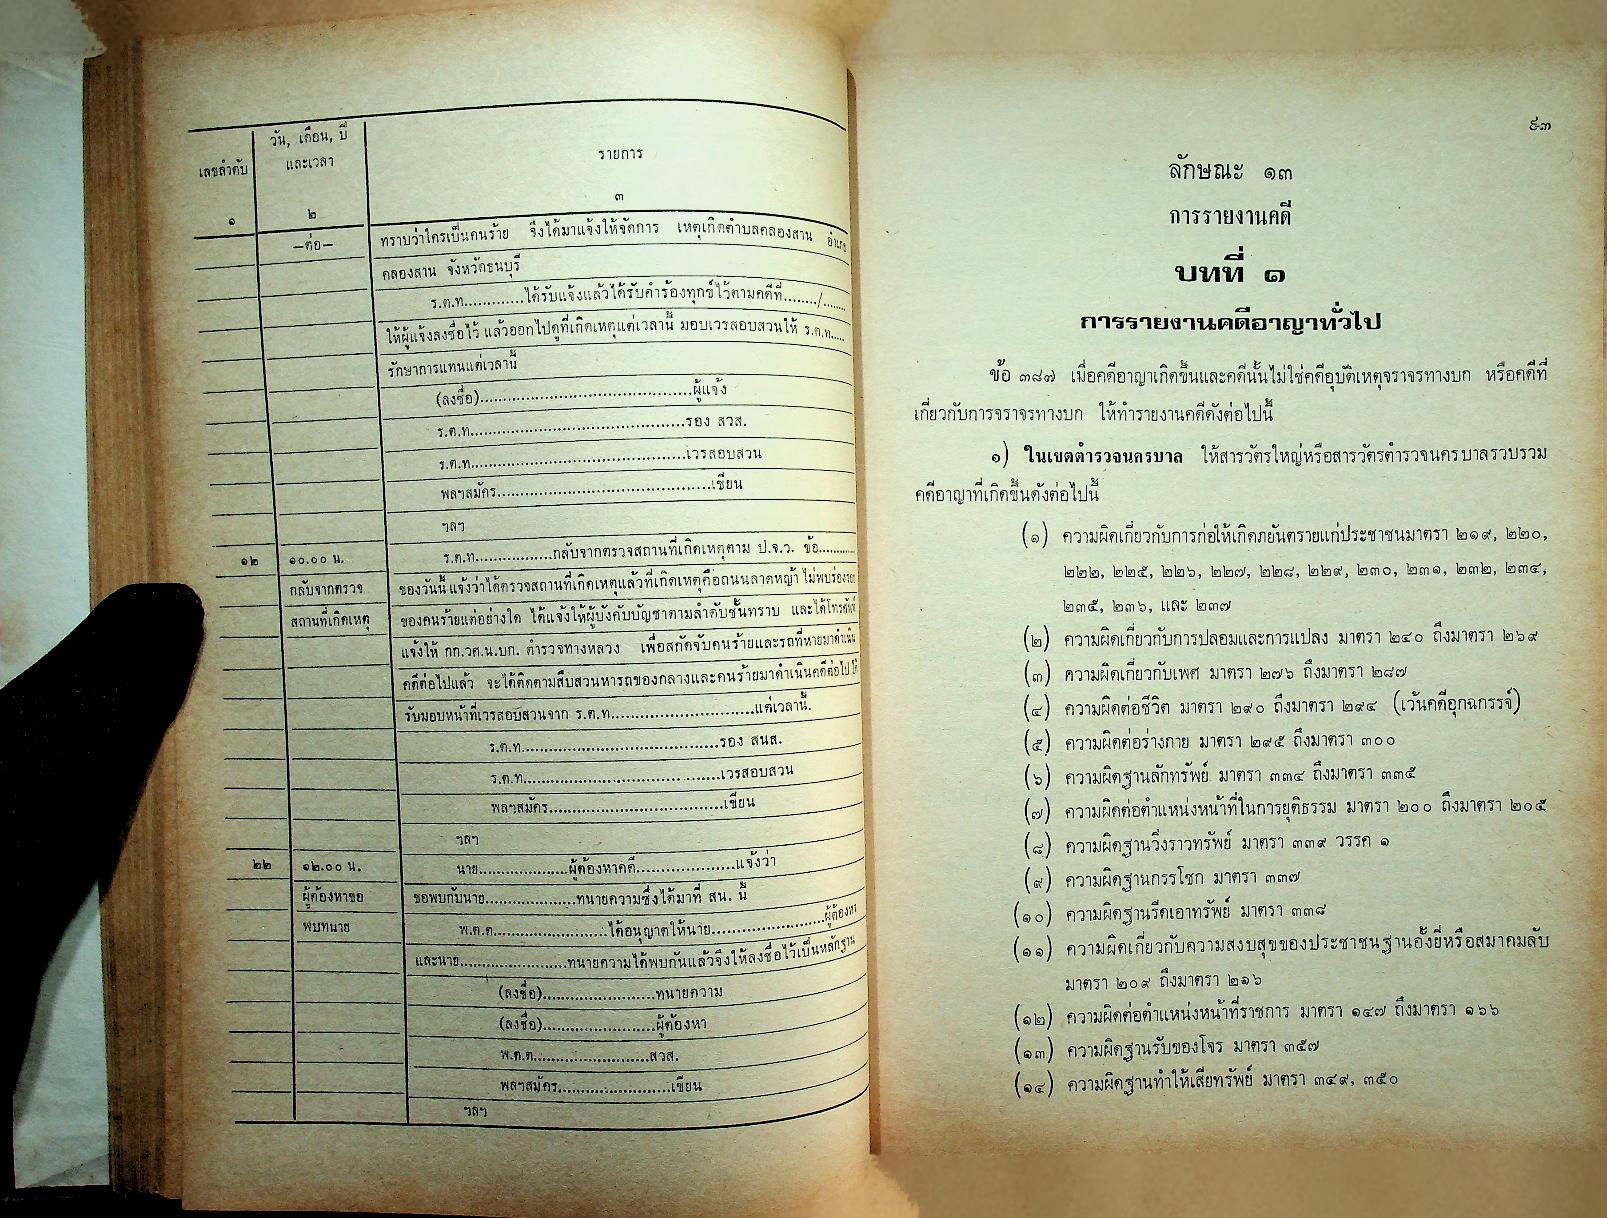 เลขลำดับ
วัน, เดือน, ปี
และเวลา
รายการ
๑
๒
๓
—ต่อ—
ทราบว่าใครเป็นคนร้าย จึงได้มาแจ้งให้จัดการ เหตุเกิดตำบลคลองสาน อำเภอ
คลองสาน จังหวัดธนบุรี
ร.ต.ท.............ได้รับแจ้งแล้วได้รับคำร้องทุกข์ไว้ตามคดีที่......../........
ให้ผู้แจ้งลงชื่อไว้ แล้วออกไปดูที่เกิดเหตุแต่เวลานี้ มอบเวรสอบสวนให้ ร.ต.ท.....
รักษาการแทนแต่เวลานี้
(ลงชื่อ)............................................ผู้แจ้ง
ร.ต.ท.............................................รอง สวส.
ร.ต.ท.............................................เวรสอบสวน
พลฯสมัคร............................................เขียน
ฯลฯ
๑๒
๑๐.๐๐ น.
ร.ต.ท................กลับจากตรวจสถานที่เกิดเหตุตาม ป.จ.ว. ข้อ............
กลับจากตรวจ
ของวันนี้ แจ้งว่าได้ตรวจสถานที่เกิดเหตุแล้วที่เกิดเหตุคือถนนลาดหญ้า ไม่พบร่องรอย
สถานที่เกิดเหตุ
ของคนร้ายแต่อย่างใด ได้แจ้งให้ผู้บังคับบัญชาตามลำดับชั้นทราบ และได้โทรศัพท์
แจ้งให้ กก.วศ.น.บก. ตำรวจทางหลวง เพื่อสกัดจับคนร้ายและรถที่หายมาดำเนิน
คดีต่อไปแล้ว จะได้ติดตามสืบสวนหารถของกลางและคนร้ายมาดำเนินคดีต่อไป ได้
รับมอบหน้าที่เวรสอบสวนจาก ร.ต.ท..............................แต่เวลานี้.
ร.ต.ท..........................................รอง สนส.
ร.ต.ท..........................................เวรสอบสวน
พลฯสมัคร....................................เขียน
ฯลฯ
๒๒
๑๒.๐๐ น.
นาย...................ผู้ต้องหาคดี.....................แจ้งว่า
ผู้ต้องหาขอ
ขอพบกับนาย....................ทนายความซึ่งได้มาที่ สน. นี้
พบทนาย
พ.ต.ต.......................ได้อนุญาตให้นาย........................ผู้ต้องหา
และนาย.......................ทนายความได้พบกันแล้วจึงให้ลงชื่อไว้เป็นหลักฐาน
(ลงชื่อ)........................ทนายความ
(ลงชื่อ)........................ผู้ต้องหา
พ.ต.ต.........................สวส.
พลฯสมัคร........................เขียน
ฯลฯ
๙๓
ลักษณะ ๑๓
การรายงานคดี
บทที่ ๑
การรายงานคดีอาญาทั่วไป
ข้อ ๓๘๗ เมื่อคดีอาญาเกิดขึ้นและคดีนั้นไม่ใช่คดีอุบัติเหตุจราจรทางบก หรือคดีที่
เกี่ยวกับการจราจรทางบก ให้ทำรายงานคดีดังต่อไปนี้
๑) ในเขตตำรวจนครบาล ให้สารวัตรใหญ่หรือสารวัตรตำรวจนครบาลรวบรวม
คดีอาญาที่เกิดขึ้นดังต่อไปนี้
(๑) ความผิดเกี่ยวกับการก่อให้เกิดภยันตรายแก่ประชาชนมาตรา ๒๑๙, ๒๒๐,
๒๒๒, ๒๒๕, ๒๒๖, ๒๒๗, ๒๒๘, ๒๒๙, ๒๓๐, ๒๓๑, ๒๓๒, ๒๓๔,
๒๓๕, ๒๓๖, และ ๒๓๗
(๒) ความผิดเกี่ยวกับการปลอมและการแปลง มาตรา ๒๔๐ ถึงมาตรา ๒๖๙
(๓) ความผิดเกี่ยวกับเพศ มาตรา ๒๗๖ ถึงมาตรา ๒๘๗
(๔) ความผิดต่อชีวิต มาตรา ๒๙๐ ถึงมาตรา ๒๙๔ (เว้นคดีอุกฉกรรจ์)
(๕) ความผิดต่อร่างกาย มาตรา ๒๙๕ ถึงมาตรา ๓๐๐
(๖) ความผิดฐานลักทรัพย์ มาตรา ๓๓๔ ถึงมาตรา ๓๓๕
(๗) ความผิดต่อตำแหน่งหน้าที่ในการยุติธรรม มาตรา ๒๐๐ ถึงมาตรา ๒๐๕
(๘) ความผิดฐานวิ่งราวทรัพย์ มาตรา ๓๓๙ วรรค ๑
(๙) ความผิดฐานกรรโชก มาตรา ๓๓๗
(๑๐) ความผิดฐานรีดเอาทรัพย์ มาตรา ๓๓๘
(๑๑) ความผิดเกี่ยวกับความสงบสุขของประชาชนฐานอั้งยี่หรือสมาคมลับ
มาตรา ๒๐๙ ถึงมาตรา ๒๑๖
(๑๒) ความผิดต่อตำแหน่งหน้าที่ราชการ มาตรา ๑๔๗ ถึงมาตรา ๑๖๖
(๑๓) ความผิดฐานรับของโจร มาตรา ๓๕๗
(๑๔) ความผิดฐานทำให้เสียทรัพย์ มาตรา ๓๔๙, ๓๕๐